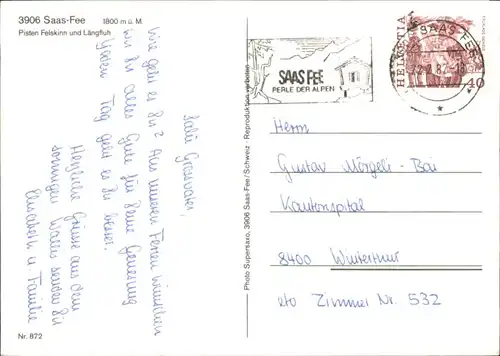 3906 Saas-Fee 1800 m ü. M.
Pisten Felskinn und Längfluh
Salü Grossvater,
Wie geht es Dir? Aus unseren Ferien wünschen
wir Dir alles Gute für Deine Genesung
Jeden Tag geht es Dir besser.
Herzliche Grüsse aus dem
sonnigen Wallis senden Dir
Elisabeth u. Familie
Nr. 872
Photo Supersaxo, 3906 Saas-Fee/Schweiz - Reproduktion verboten
SAAS FEE
PERLE DER ALPEN
SAAS FEE
HELVETIA
40
Herrn
Gustav Mörgeli-Bai
Kantonsspital
8400 Winterthur
Zimmer Nr. 532